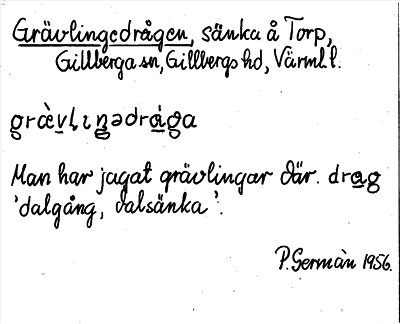 Grävlingedrågen, sänka å Torp,
Gillberga sn, Gillbergs hd, Värml. l.
græ̀vḷıŋədrága
Man har jagat grävlingar där. drag
'dalgång, dalsänka'.
P. Germàn 1956.